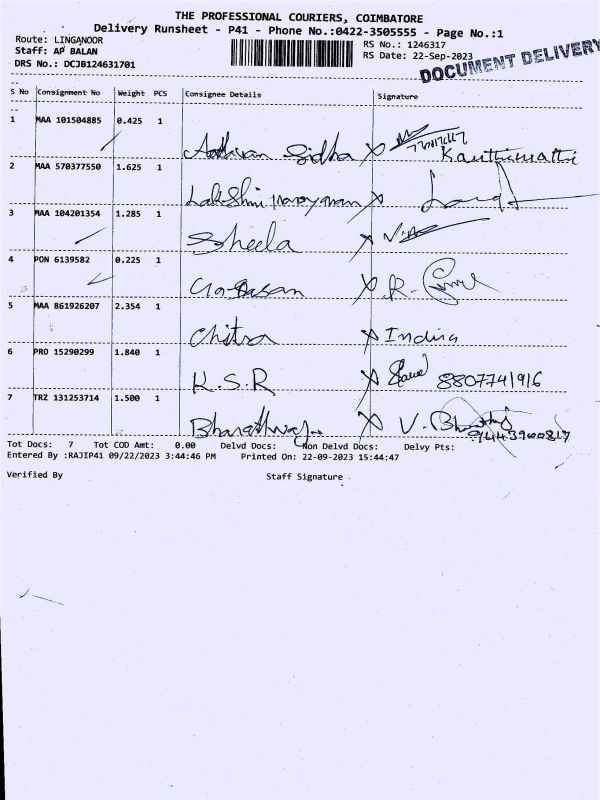 THE PROFESSIONAL COURIERS, COIMBATORE
Delivery Runsheet - P41 - Phone No.:0422-3505555 - Page No.:1
Route: LINGANOOR
RS No.: 1246317
Staff: AP BALAN
RS Date: 22-Sep-2023
DRS No.: DCJB124631701
DOCUMENT DELIVERY
S No Consignment No Weight PCS Consignee Details Signature
1 MAA 101504885 0.425 1
Sidha Kauthiswathi
2 MAA 570377550 1.625 1
Lakshmi narayanan
3 MAA 104201354 1.285 1
Sheela
4 PON 6139582 0.225 1
R.
5 MAA 861926207 2.354 1
Chitra Indira
6 PRO 15290299 1.840 1
K.S.R 8807741916
7 TRZ 131253714 1.500 1
Bharathwaj V.
9443900817
Tot Docs: 7 Tot COD Amt: 0.00 Delvd Docs: Non Delvd Docs: Delvy Pts:
Entered By :RAJIP41 09/22/2023 3:44:46 PM Printed On: 22-09-2023 15:44:47
Verified By Staff Signature